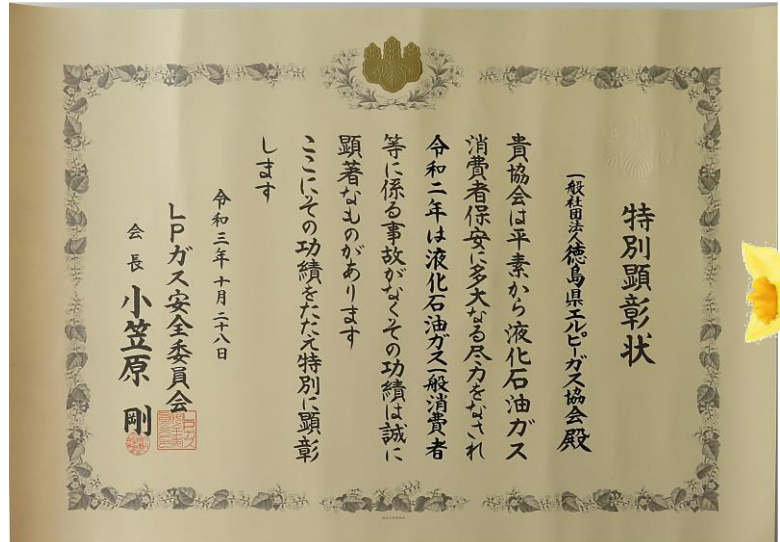 特別顕彰状
一般社団法人徳島県エルピーガス協会殿
貴協会は平素から液化石油ガス
消費者保安に多大なる尽力をなされ
令和二年は液化石油ガス一般消費者
等に係る事故がなくその功績は誠に
顕著なものがあります
ここにその功績をたたえ特別に顕彰
します
令和三年十月二十八日
LPガス安全委員会
会長 小笠原 剛